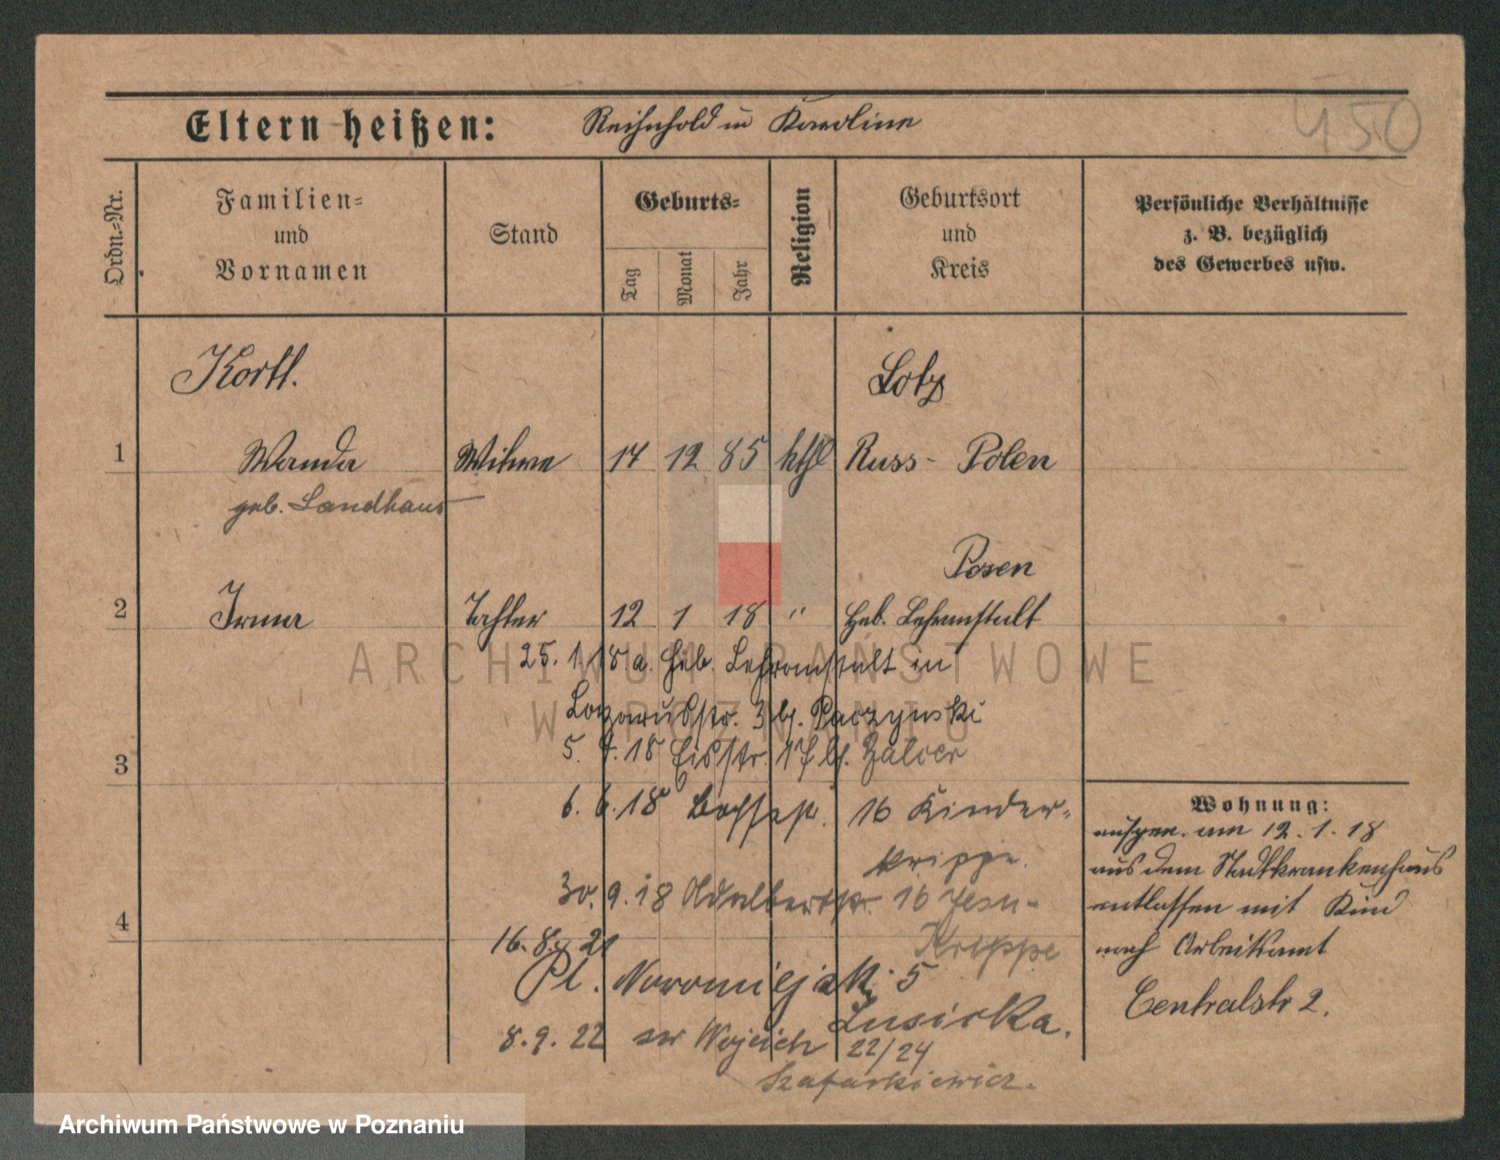 450
Eltern heißen: Reihnhold u Karoline
Ordn.-Nr.
Familien- und Vornamen
Stand
Geburts-
Tag
Monat
Jahr
Religion
Geburtsort und Kreis
Persönliche Verhältnisse
z. B. bezüglich
des Gewerbes usw.
Lotz
1 Wanda Witwe 14 12 85 kthl Russ- Polen
geb. Landhaus
Posen
2 Irma Tochter 12 1 18 " Heb. Lehranstalt
25. 1. 18 a. Heb. Lehranstalt in
Lazarusstr. 3 bj. Paczynski
5. 4. 18 17 bj.
3
6. 6. 18 16 Kinder-
krippe.
30. 9. 18 Adalbertstr. 16 Jesu-
Krippe
4
16. 8. 21
Pl. Nowomiejski 5
Lusicka.
8. 9. 22 sw Wojciech 22/24
Szafarkiewicz.
Wohnung:
am 12. 1. 18
aus dem Stadtkrankenhaus
entlassen mit Kind
nach Arbeitsamt
Centralstr 2.
ARCHIWUM PAŃSTWOWE
W POZNANIU
Archiwum Państwowe w Poznaniu